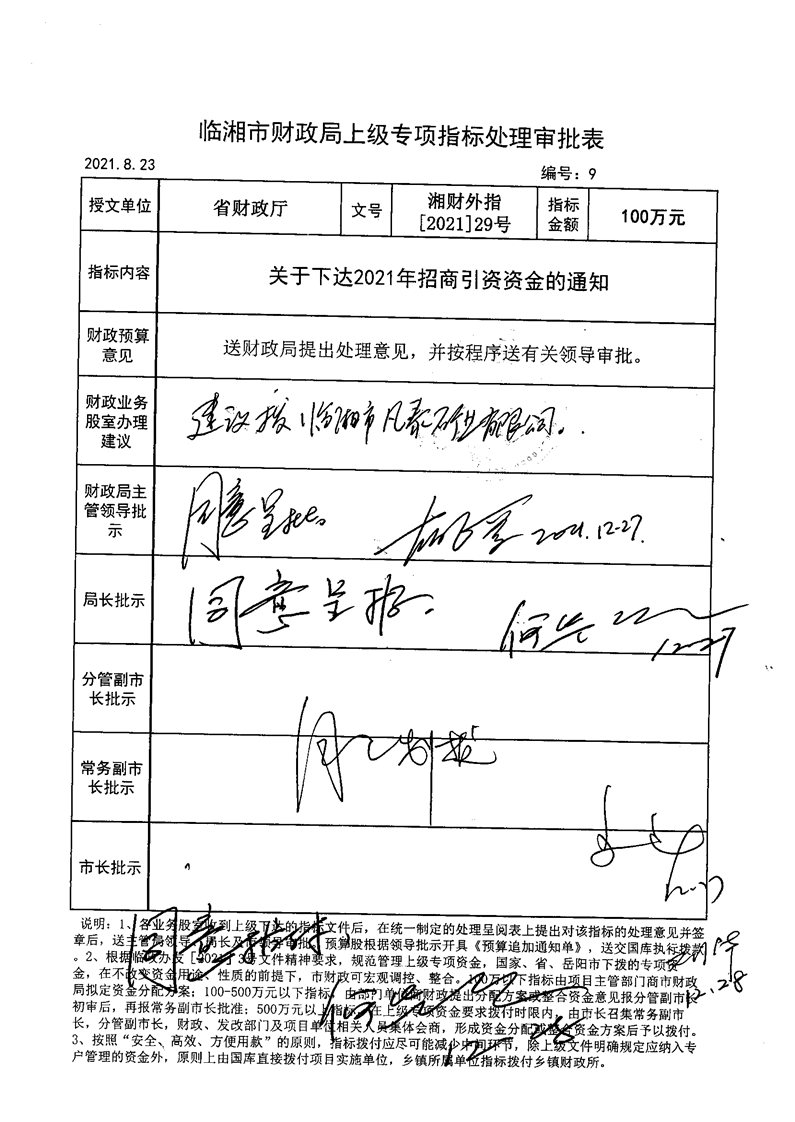 临湘市财政局上级专项指标处理审批表
2021.8.23
编号：9
授文单位 省财政厅 文号 湘财外指[2021]29号 指标金额 100万元
指标内容 关于下达2021年招商引资资金的通知
财政预算意见 送财政局提出处理意见，并按程序送有关领导审批。
财政业务股室办理建议 建议拨临湘市凡泰石业有限公司。
财政局主管领导批示 同意呈批。 2021.12.27.
局长批示 同意呈报. 12.27
分管副市长批示
常务副市长批示
市长批示
说明：1、各业务股室收到上级下达的指标文件后，在统一制定的处理呈阅表上提出对该指标的处理意见并签
章后，送主管局领导、局长及市领导审批，预算股根据领导批示开具《预算追加通知单》，送交国库执行拨款
。2、根据临政办发[2021]3号文件精神要求，规范管理上级专项资金，国家、省、岳阳市下拨的专项资
金，在不改变资金用途、性质的前提下，市财政可宏观调控、整合。100万以下指标由项目主管部门商市财政
局拟定资金分配方案；100-500万元以下指标，由部门单位商财政提出分配方案或整合资金意见报分管副市长
初审后，再报常务副市长批准；500万元以上指标，在上级专项资金要求拨付时限内，由市长召集常务副市
长，分管副市长，财政、发改部门及项目单位相关人员集体会商，形成资金分配或整合资金方案后予以拨付。
3、按照“安全、高效、方便用款”的原则，指标拨付应尽可能减少中间环节，除上级文件明确规定应纳入专
户管理的资金外，原则上由国库直接拨付项目实施单位，乡镇所属单位指标拨付乡镇财政所。
同意拨付.
12.28
12.28